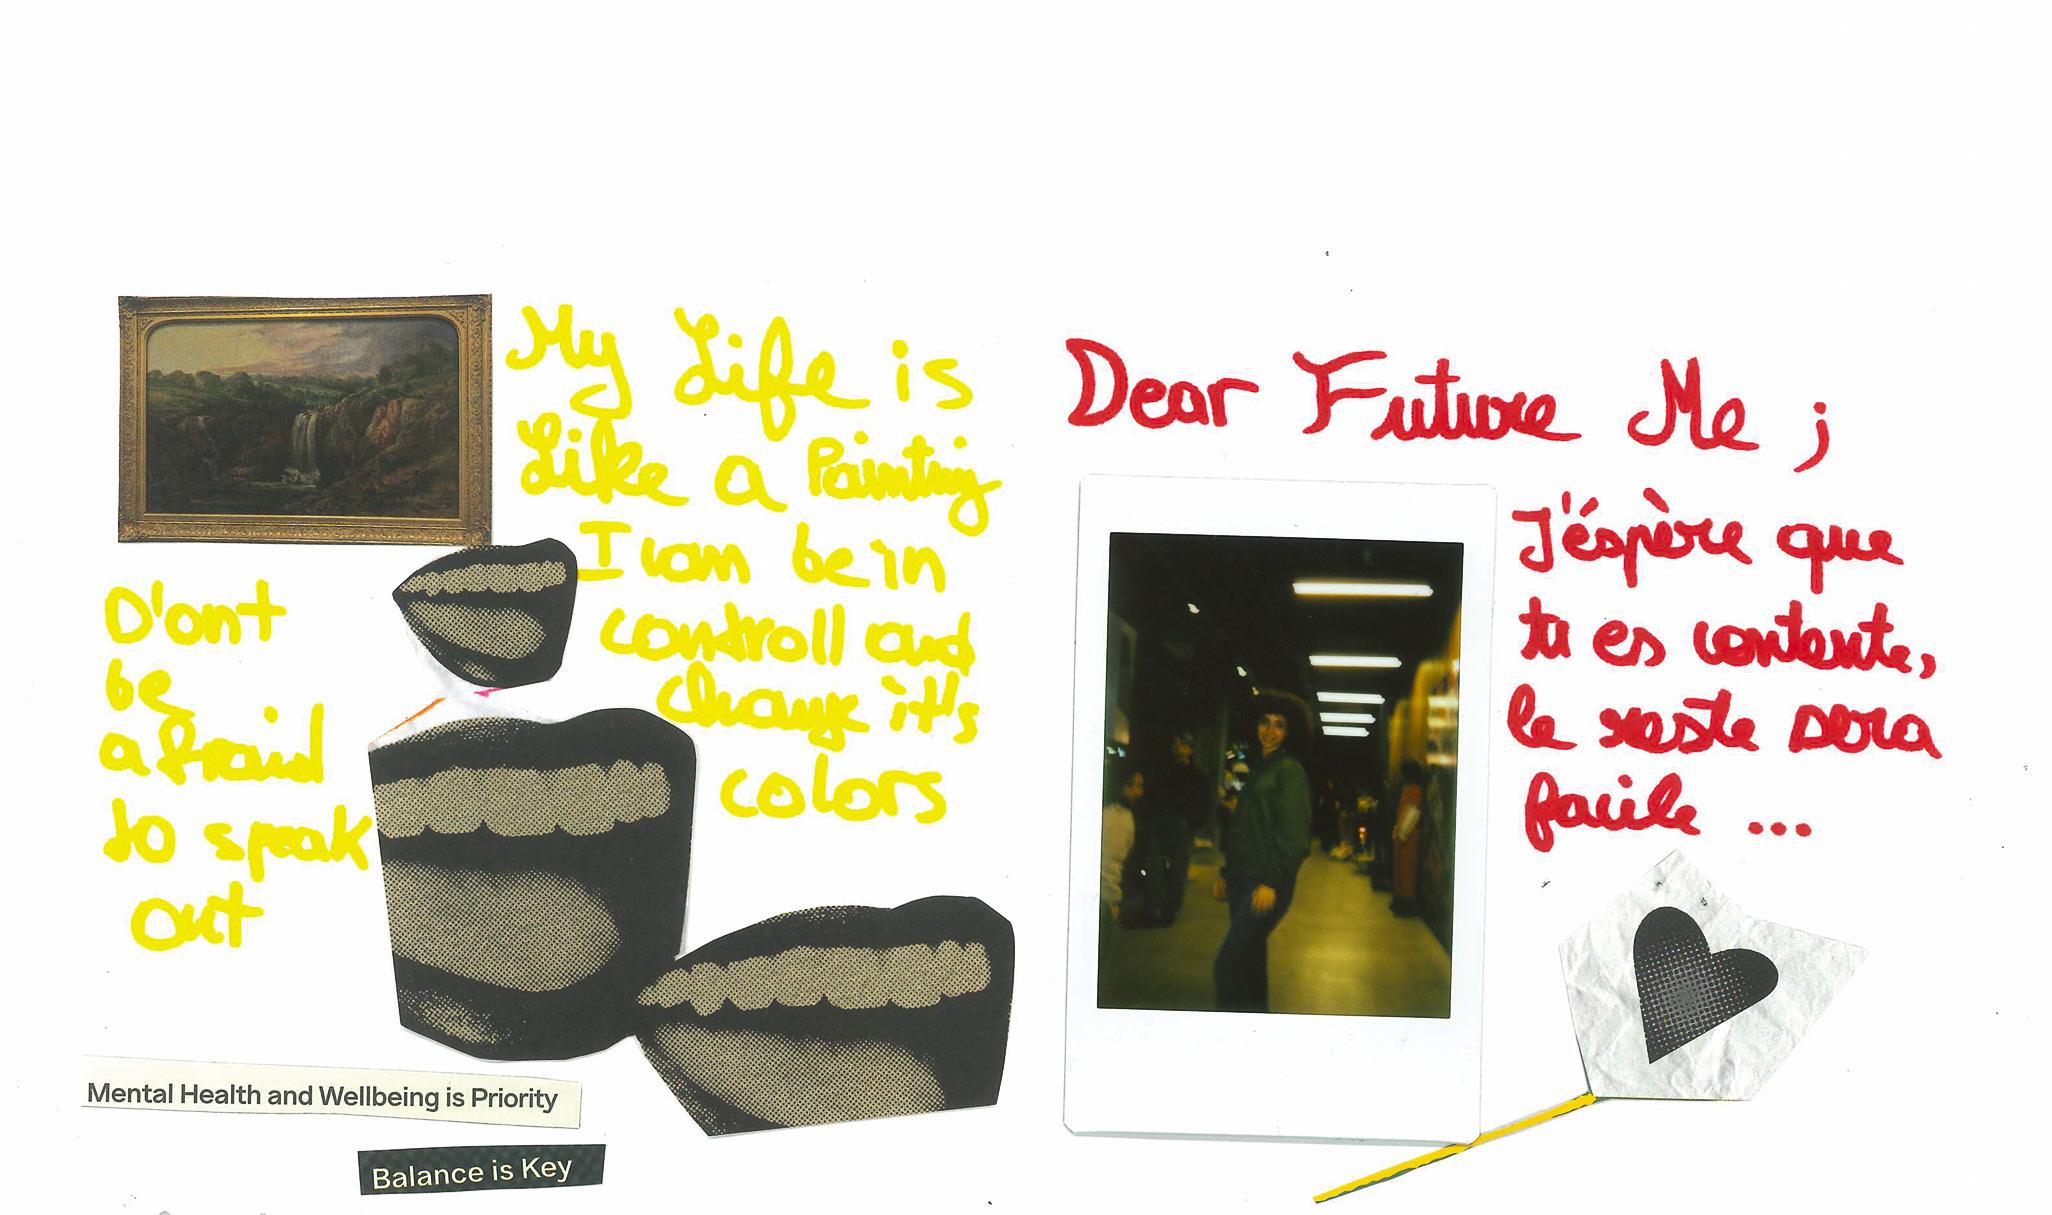 My Life is
Like a Painting
I can be in
controll and
change it's
colors
D'ont
be
afraid
to speak
out
Mental Health and Wellbeing is Priority
Balance is Key
Dear Future Me ;
J'éspère que
tu es contente,
le reste sera
facile ...